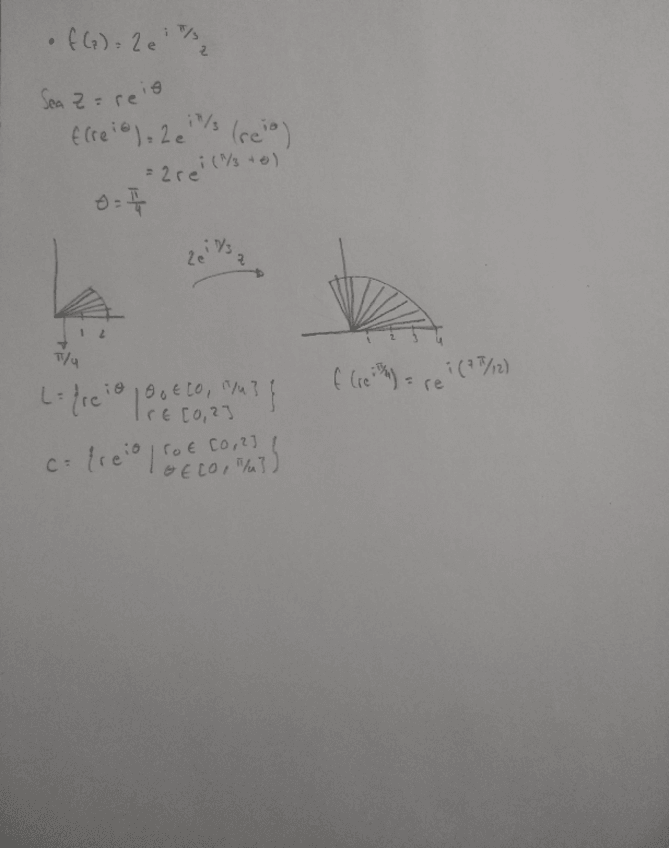 • f(z) = 2e^{i π/3} z
Sea z = re^{iθ}
f(re^{iθ}) = 2e^{iπ/3} (re^{iθ})
= 2re^{i(π/3 + θ)}
θ = π/4
2e^{iπ/3} z
1 2
π/4
1 2 3 4
L = {re^{iθ} | θ₀ ∈ [0, π/4]
r ∈ [0,2]}
f(re^{iπ/4}) = re^{i(7π/12)}
C = {re^{iθ} | r₀ ∈ [0,2]
θ ∈ [0, π/4]}